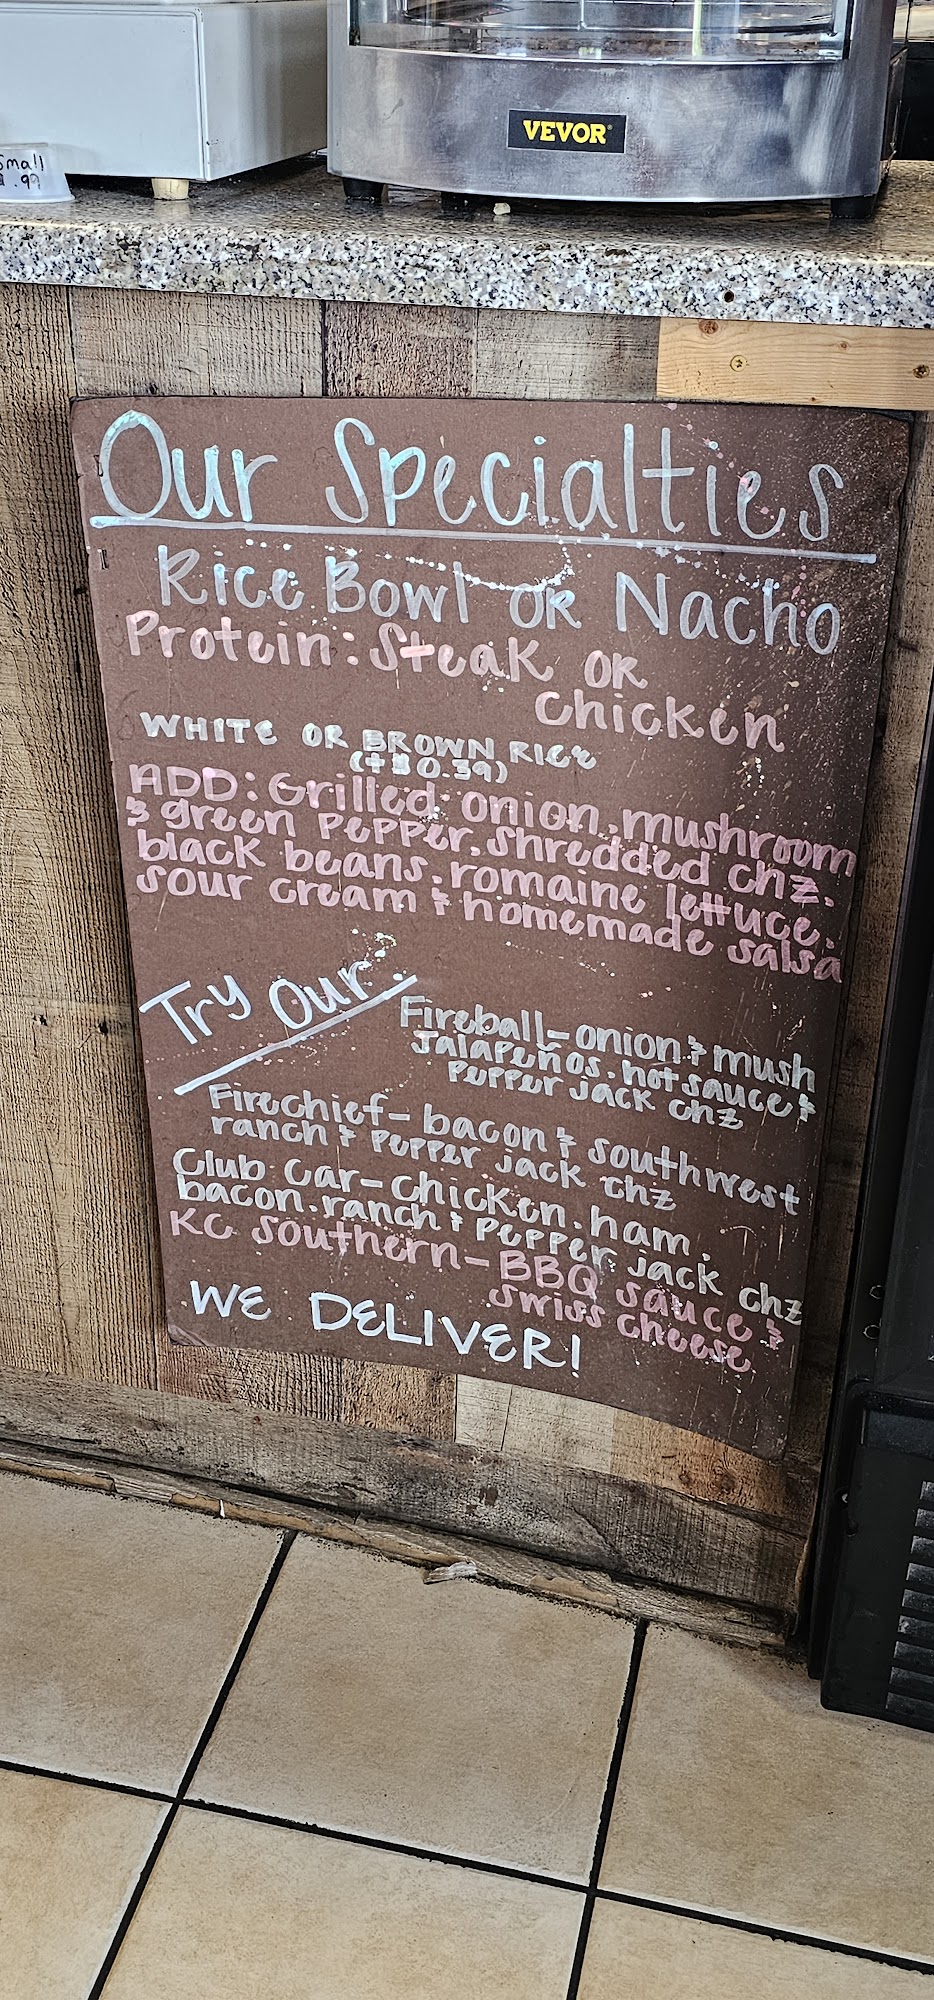 VEVOR
Small
.99
Our Specialties
Rice Bowl OR Nacho
Protein: Steak OR
Chicken
WHITE OR BROWN RICE
(+$0.39)
ADD: Grilled onion, mushroom
& green pepper, shredded chz,
black beans, romaine lettuce,
sour cream & homemade salsa
Try Our:
Fireball - onion & mush
Jalapeños, hot sauce &
pepper jack chz
Firechief - bacon & southwest
ranch & pepper jack chz
Club Car - chicken, ham,
bacon, ranch & pepper jack chz
KC Southern - BBQ sauce &
swiss cheese
WE DELIVER!